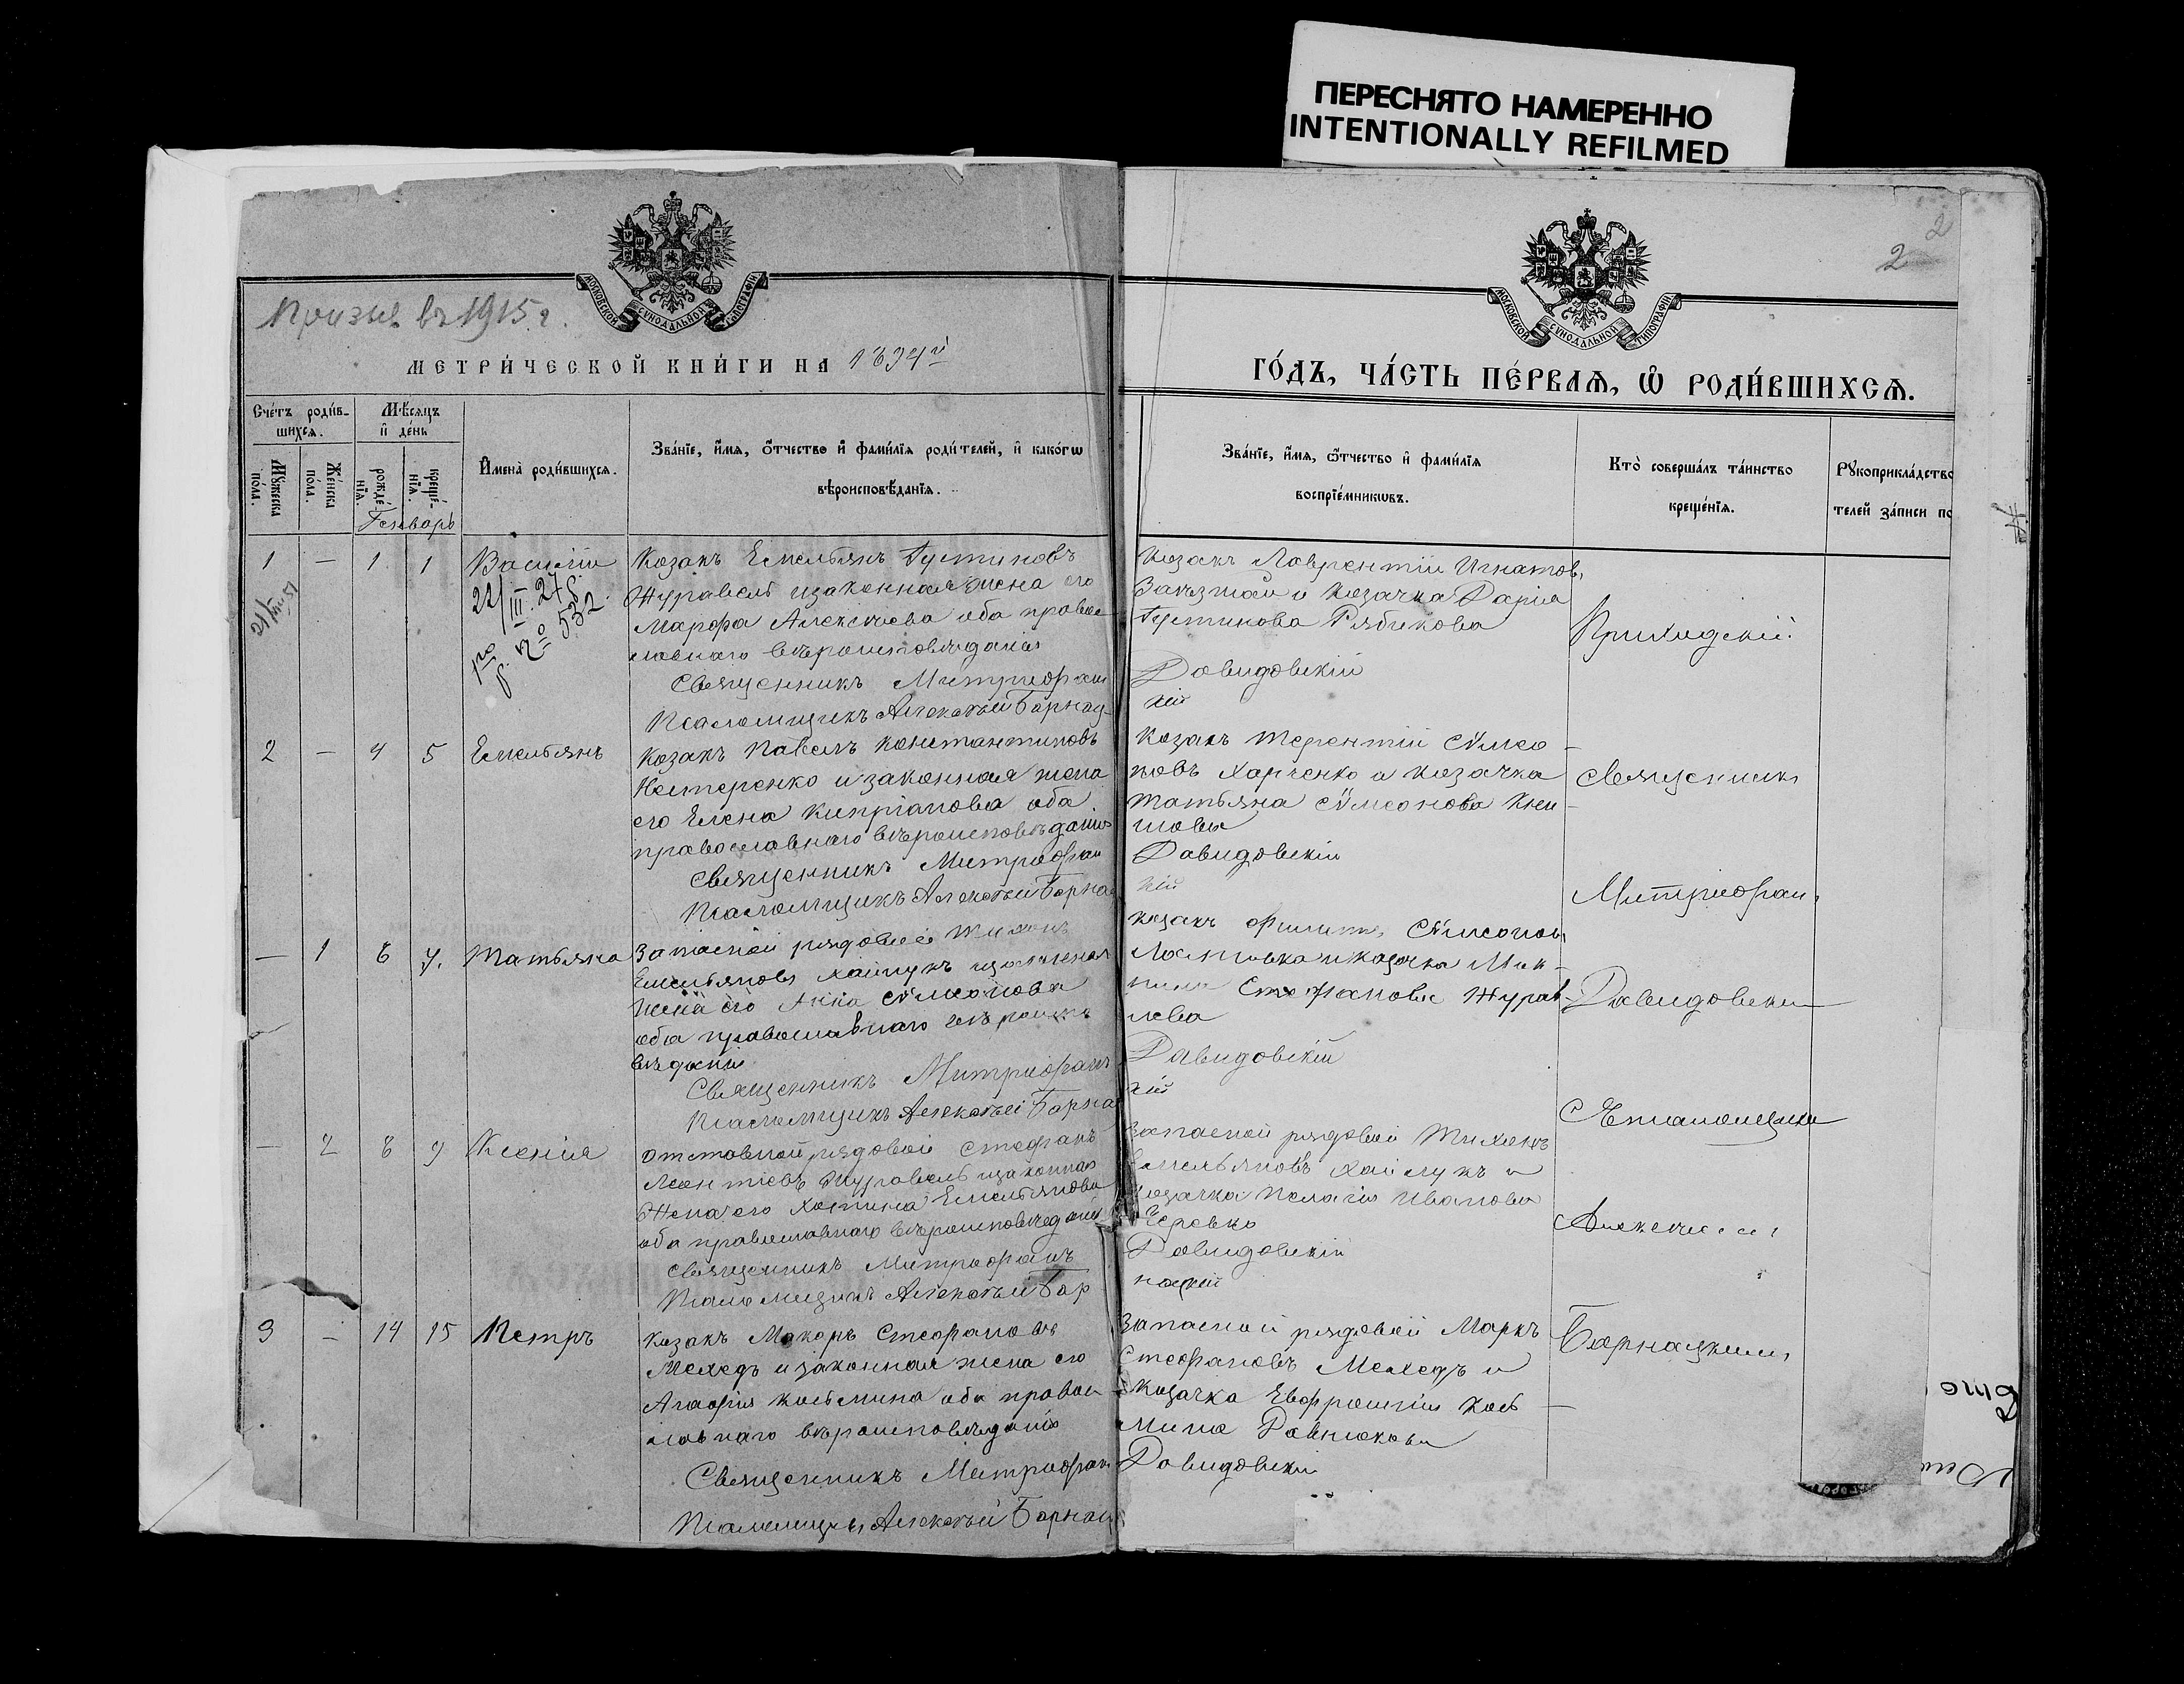 ПЕРЕСНЯТО НАМЕРЕННО
INTENTIONALLY REFILMED
2
2
МОСКОВСКОЙ СѴНОДАЛЬНОЙ ТИПОГРАФІИ
МОСКОВСКОЙ СѴНОДАЛЬНОЙ ТИПОГРАФІИ
Призыв въ 1915 г.
МЕТРИ́ЧЕСКОЙ КНИ́ГИ НА 1894й
ГО́ДЪ, ЧА́СТЬ ПЕ́РВАѦ, Ѡ҆ РОДИ́ВШИХСѦ.
Сче́тъ роди́в-
шихсѧ.
Мѣ́сѧцъ
и҆ де́нь
Мꙋ́жеска по́ла.
Же́нска по́ла.
рожде́-нїѧ.
креще́-нїѧ.
И҆мена̀ роди́вшихсѧ.
Зва́нїе, и҆́мѧ, ѻ҆́тчество и҆ фами́лїѧ роди́телей, и҆ како́гѡ
вѣроисповѣ́данїѧ.
Зва́нїе, и҆́мѧ, ѻ҆́тчество и҆ фами́лїѧ
воспрїе́мникѡвъ.
Кто̀ соверша́лъ та́инство
креще́нїѧ.
Рꙋкоприкла́дство
телей за́писи по
Генварь
1 — 1 1 Василій
22/III 27 г.
№ 532
Козакъ Емельянъ Іустиновъ
Журавель и законная жена его
Марфа Алексѣева оба правос-
лавнаго вѣроисповѣданія
Священникъ Митрофан
Псаломщикъ Алексѣй Барнац-
Козакъ Лаврентій Игнатов
и Козачка Дарія
Іустинова Рябикова
Давидовскій
кій
Приходскій
2 — 4 5 Емельянъ
Козакъ Павелъ Константиновъ
Нестеренко и законная жена
его Елена Кипріанова оба
православнаго вѣроисповѣданія
Священникъ Митрофан
Псаломщикъ Алексѣй Барнац
Козакъ Терентій Сѵмео-
новъ Харченко и Козачка
Татьяна Сѵмеонова
Давидовскій
кій
Священникъ
Митрофанъ
— 1 6 7. Татьяна
Запасной рядовой Тихонъ
Емельяновъ Хаймукъ и законная
жена его Анна Сѵмеонова
оба православнаго вѣроиспо
вѣданія
Священникъ Митрофанъ
Псаломщикъ Алексѣй Барнац
Козакъ Филиппъ Сѵмеоновъ
и Козачка
Стефанова Журав-
лева
Давидовскій
кій
Давидовскій
Съ псаломщикомъ
— 2 8 9 Ксенія
Отставной рядовой Стефанъ
Леонтіевъ Журавель и законная
жена его Емельянова
оба православнаго вѣроисповѣданія
Священникъ Митрофанъ
Псаломщикъ Алексѣй Бар
Запасной рядовой Тихонъ
Емельяновъ Хаймукъ и
Козачка Пелагія Иванова
Черевко
Давидовскій
нацкій
Алексѣемъ
3 — 14 15 Петръ
Козакъ Макаръ Стефановъ
Мелхедъ и законная жена его
Агафія Косьмина оба правос-
лавнаго вѣроисповѣданія
Священникъ Митрофан
Псаломщикъ Алексѣй Барнац
Запасной рядовой Маркъ
Стефановъ Мелхедъ и
Козачка Евфросинія Кось-
мина
Давидовскій
Барнацкимъ